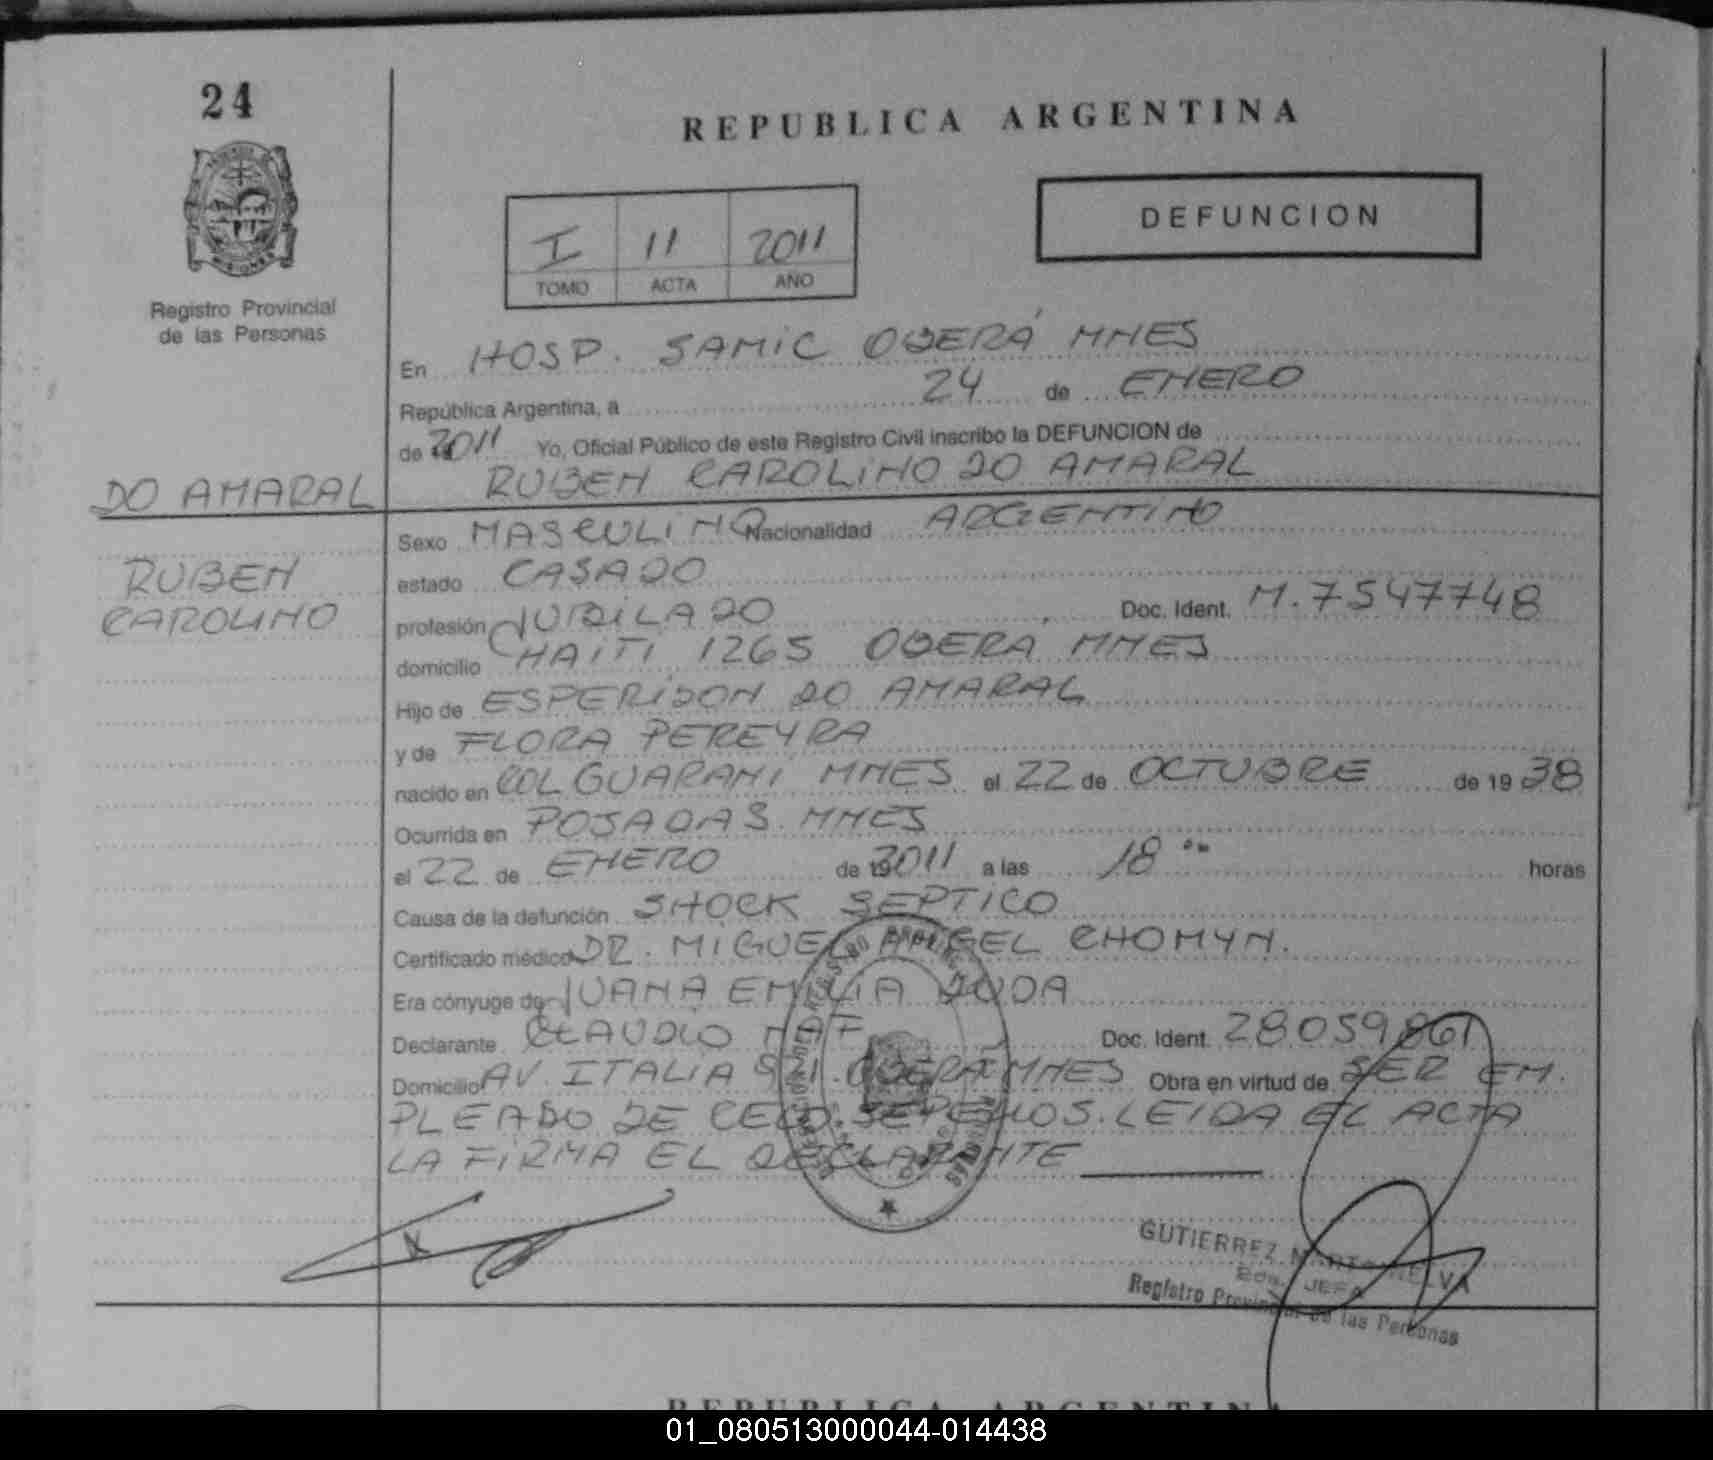 24
REPUBLICA ARGENTINA
DEFUNCION
I 11 2011
TOMO ACTA AÑO
Registro Provincial
de las Personas
En HOSP. SAMIC OBERÁ MNES
República Argentina, a 24 de ENERO
de 2011 Yo, Oficial Público de este Registro Civil inscribo la DEFUNCION de
RUBEN CAROLINO DO AMARAL
DO AMARAL
RUBEN
CAROLINO
Sexo MASCULINO Nacionalidad ARGENTINO
estado CASADO
profesión JUBILADO Doc. Ident. M. 7547748
domicilio HAITI 1265 OBERA MNES
Hijo de ESPERIDON DO AMARAL
y de FLORA PEREYRA
nacido en COL GUARANI MNES el 22 de OCTUBRE de 19 38
Ocurrida en POSADAS. MNES
el 22 de ENERO de 2011 a las 18 horas
Causa de la defunción SHOCK SEPTICO
Certificado médico DR. MIGUEL ANGEL CHOMYN.
Era cónyuge de JUANA EMILIA DUDA
Declarante CLAUDIO NAF Doc. Ident. 28.059.861
Domicilio AV. ITALIA OBERA MNES Obra en virtud de SER EM.
PLEADO DE SEPELIOS. LEIDA EL ACTA
LA FIRMA EL DECLARANTE
GUTIERREZ
JEFA
Registro Provincial de las Personas
REPUBLICA ARGENTINA
01_080513000044-014438